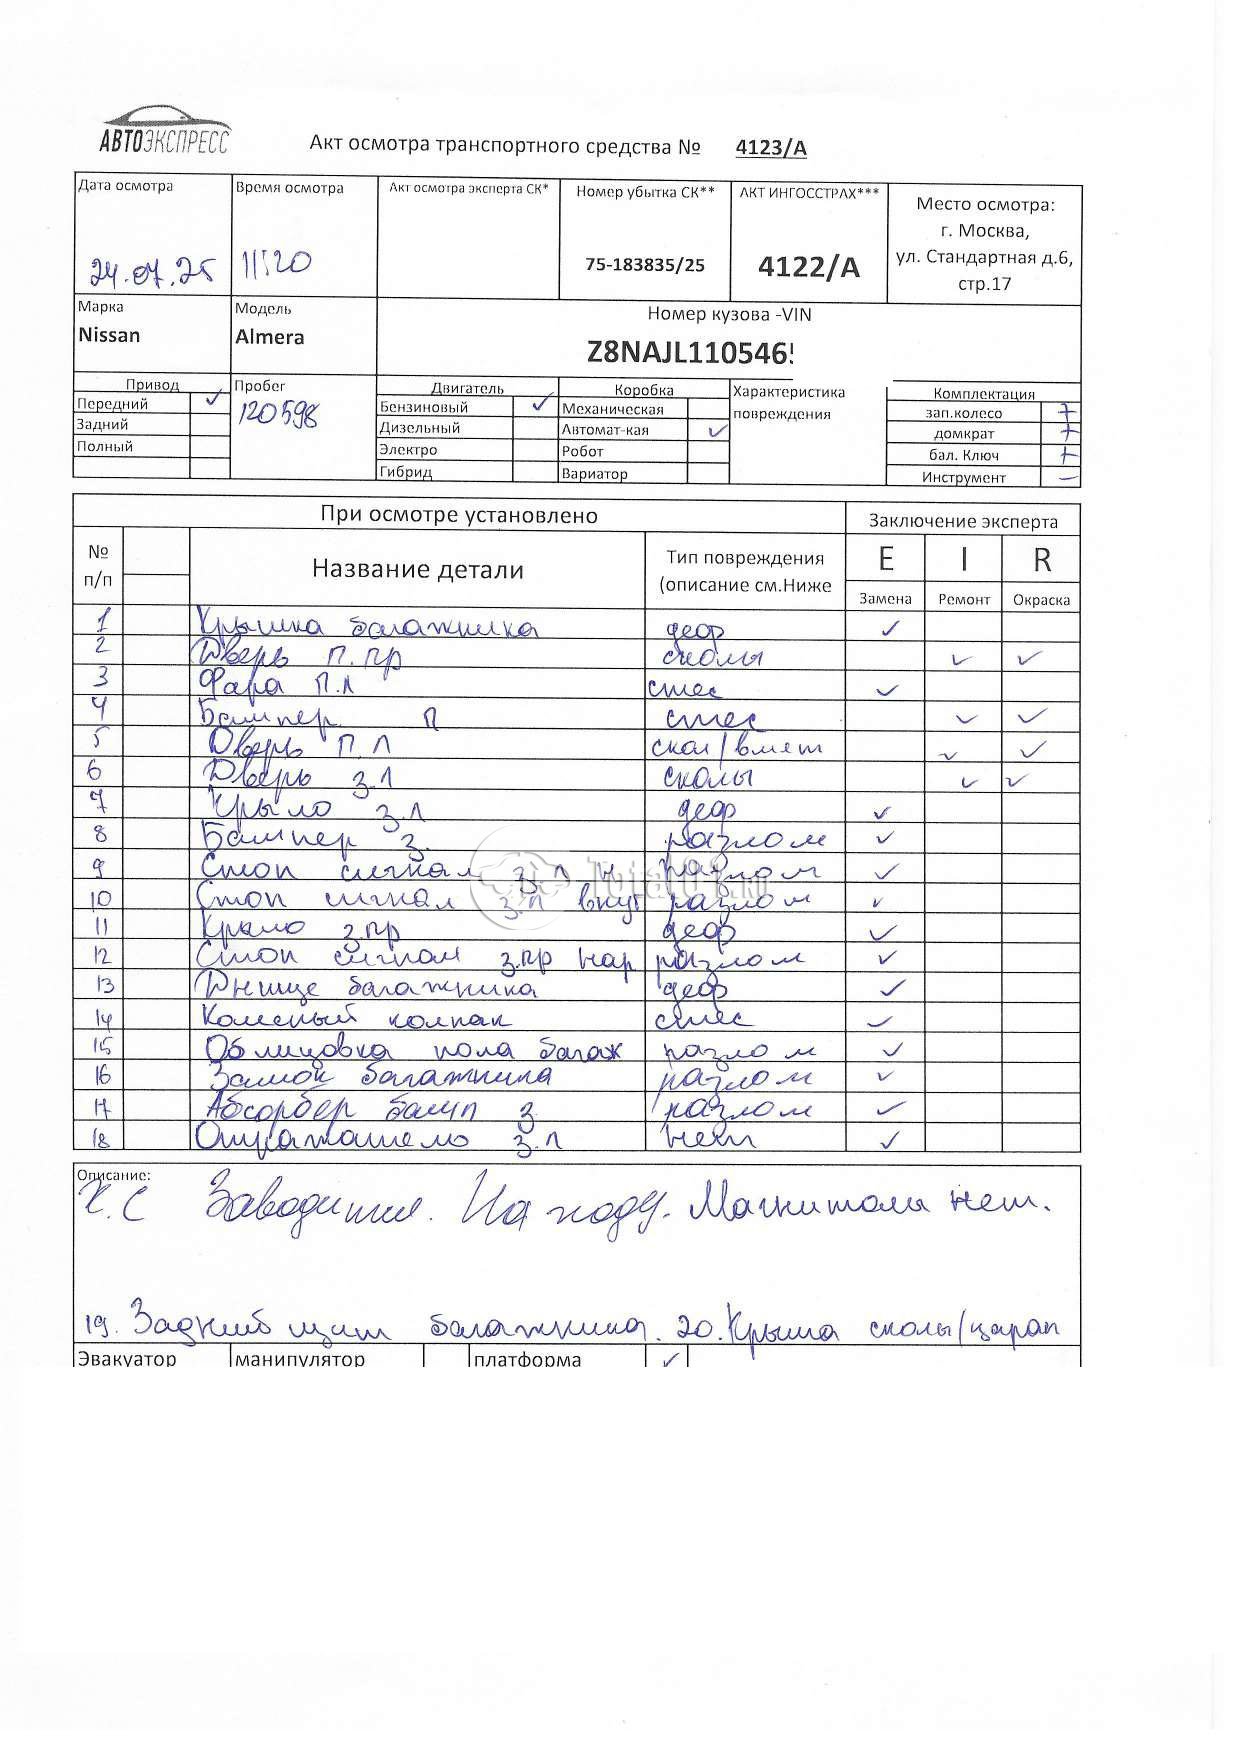 АВТОЭКСПРЕСС
Акт осмотра транспортного средства № 4123/А
Дата осмотра Время осмотра Акт осмотра эксперта СК* Номер убытка СК** АКТ ИНГОССТРАХ*** Место осмотра:
г. Москва,
24.07.25 11:20 75-183835/25 4122/А ул. Стандартная д.6,
стр.17
Марка Модель Номер кузова -VIN
Nissan Almera Z8NAJL110546
Привод Пробег Двигатель Коробка Характеристика Комплектация
Передний ✓ 120598 Бензиновый ✓ Механическая повреждения зап.колесо +
Задний Дизельный Автомат-кая ✓ домкрат +
Полный Электро Робот бал. Ключ +
Гибрид Вариатор Инструмент –
При осмотре установлено Заключение эксперта
№ п/п Название детали Тип повреждения (описание см.Ниже E I R
Замена Ремонт Окраска
1 Крышка багажника деф ✓
2 Дверь П.пр сколы ✓ ✓
3 Фара П.Л стес ✓
4 Бампер П стес ✓ ✓
5 Дверь П.Л скол/вмят ✓ ✓
6 Дверь З.Л сколы ✓ ✓
7 Крыло З.Л деф ✓
8 Бампер З. разлом ✓
9 Стоп сигнал З.Л н разлом ✓
10 Стоп сигнал З.Л внут разлом ✓
11 Крыло З.пр деф ✓
12 Стоп сигнал З.пр нар разлом ✓
13 Днище багажника деф ✓
14 Колесный колпак стес ✓
15 Облицовка пола багаж разлом ✓
16 Замок багажника разлом ✓
17 Абсорбер бамп З разлом ✓
18 З.Л нет ✓
Описание:
К.С Заводится. На ходу. Магнитолы нет.
19. Задний щит багажника. 20. Крыша сколы/царап
Эвакуатор манипулятор платформа ✓
Total01.ru